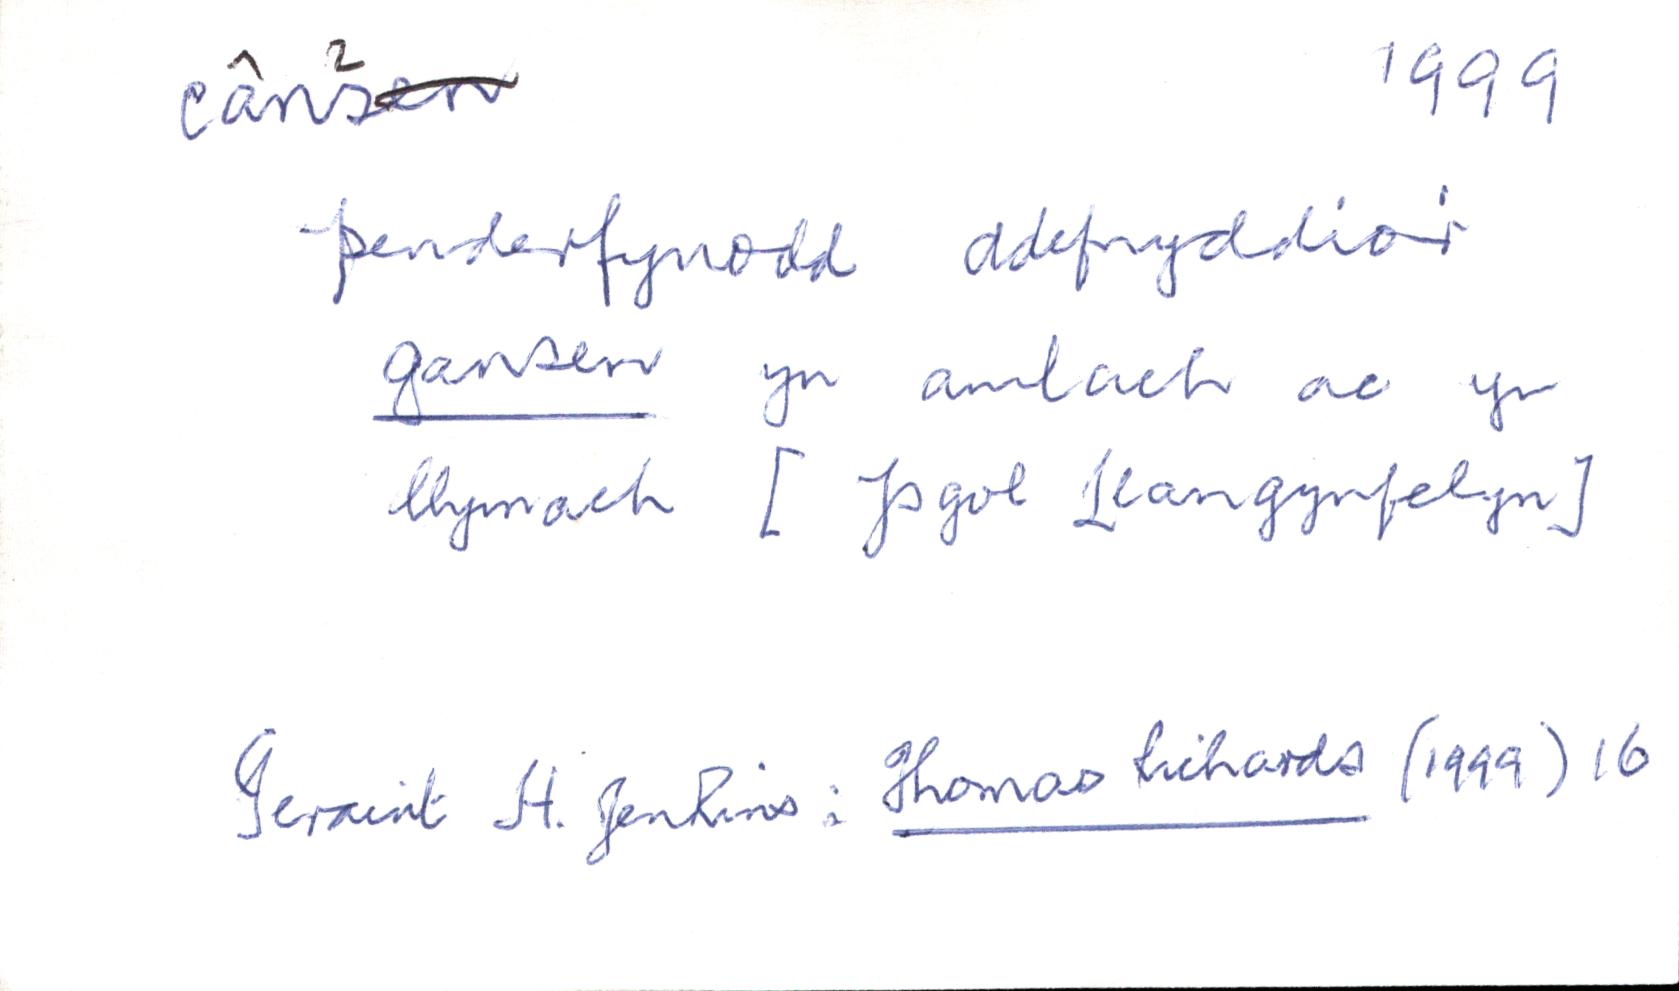 câns² 1999
penderfynodd ddefnyddio'r
gansen yn amlach ac yn
llymach [Ysgol Llangynfelyn]
Geraint H. Jenkins: Thomas Richards (1999) 16